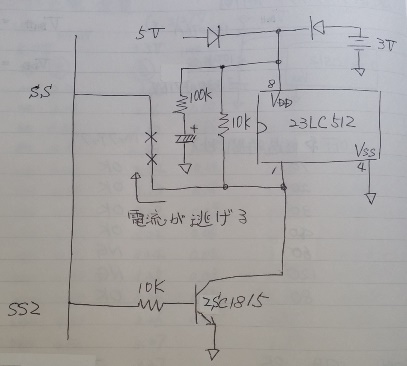 5V
3V
SS
100K
+
10K
8
VDD
23LC512
VSS
4
1
電流が逃げる
SS2
10K
2SC1815